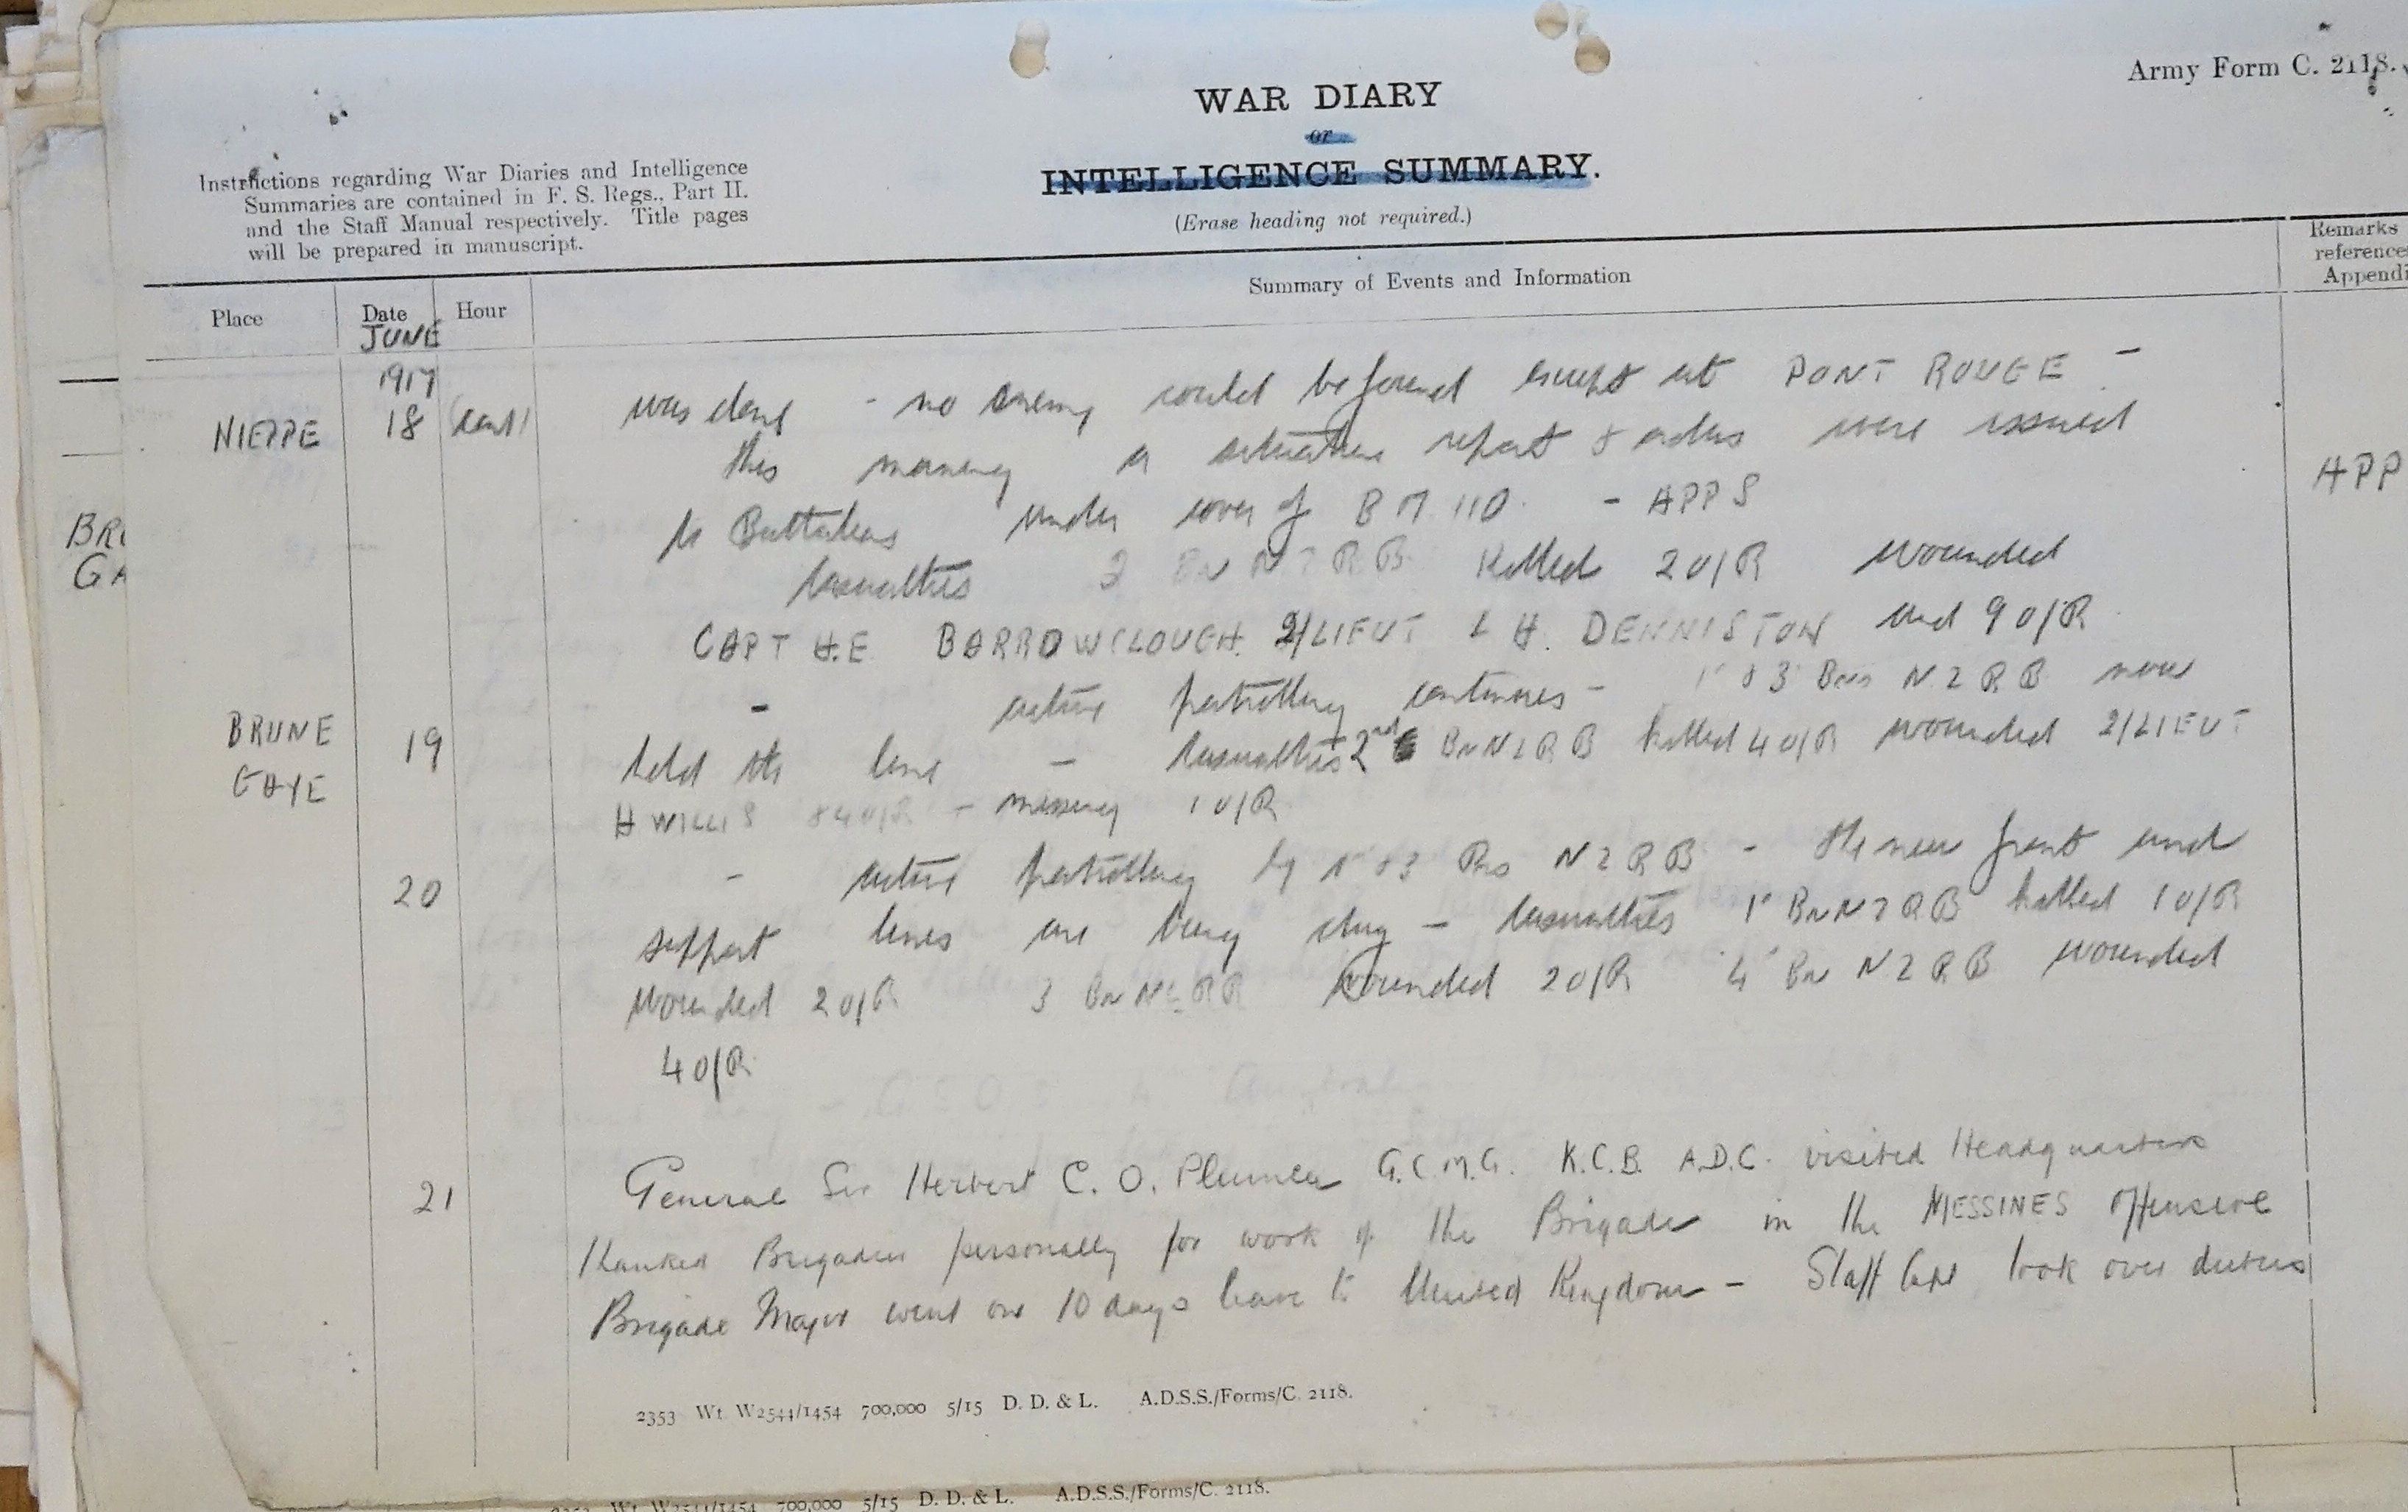 Army Form C. 2118.
WAR DIARY
or
INTELLIGENCE SUMMARY.
(Erase heading not required.)
Instructions regarding War Diaries and Intelligence
Summaries are contained in F. S. Regs., Part II.
and the Staff Manual respectively. Title pages
will be prepared in manuscript.
Place
Date
Hour
Summary of Events and Information
Remarks
reference
Appendi
JUNE
1917
NIEPPE 18 (cont) was done - no enemy could be found except at PONT ROUGE -
this morning a situation report & orders were issued
to Battalions under cover of B M 110. - APP S
APP
casualties 3 BN N Z R B killed 2 O/R wounded
CAPT H.E. BARROWCLOUGH. 2/LIEUT L H. DENNISTON and 9 O/R
BRUNE
GAYE
19 - active patrolling continues - 1 & 3 Bns N Z R B now
held the line - casualties 2nd BN N Z R B killed 4 O/R wounded 2/LIEUT
H WILLIS & 4 O/R - missing 1 O/R
20 - active patrolling by 1 & 3 Bns N Z R B - the new front and
support lines are being dug - casualties 1 BN N Z R B killed 1 O/R
wounded 2 O/R 3 BN N Z R B wounded 2 O/R 4 BN N Z R B wounded
4 O/R
21 General Sir Herbert C. O. Plumer G.C.M.G. K.C.B. A.D.C. visited Headquarters
thanked Brigadier personally for work of the Brigade in the MESSINES offensive
Brigade Major went on 10 days leave to United Kingdom - Staff Capt took over duties
2353 Wt. W2544/1454 700,000 5/15 D. D. & L. A.D.S.S./Forms/C. 2118.
BRU
GA
2353 Wt. W2544/1454 700,000 5/15 D. D. & L. A.D.S.S./Forms/C. 2118.